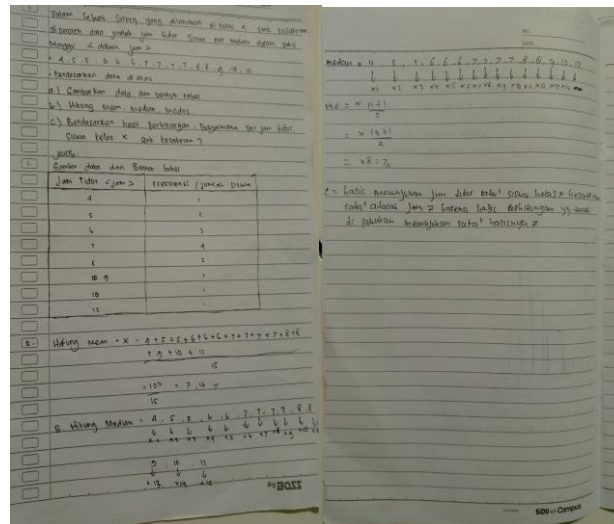 1. Dalam Sebuah Survey yang dilakukan di kelas x SMK kesatrian
diperoleh data jumlah jam tidur siswa per malam dalam satu
Minggu < dalam jam >
= 4, 5, 5, 6, 6, 6, 7, 7, 7, 7, 8, 8, 9, 10, 12
= Berdasarkan data di atas
a.) Gambarkan data dan bentuk tabel
b.) Hitung Mean, Median, Modus
c.) Berdasarkan hasil Perhitungan, jam tidur
Siswa kelas X SMK kesatrian ?
Jawab
1. Gambar data dan Bentuk tabel
Jam Tidur <jam> Frekuensi (jumlah siswa
4 1
5 2
6 3
7 4
8 2
9 1
10 1
12 1
2. Hitung mean = x = 4+5+5+6+6+6+7+7+7+7+8+8
+ 9 + 10 + 12
15
= 107 = 7,14
15
B. Hitung Median = 4, 5, 5, 6, 6, 7, 7, 7, 7, 8, 8
9, 10, 12
BOZZ
NO.
DATE
median = 4, 5, 5, 6, 6, 6, 7, 7, 7, 7, 8, 8, 9, 10, 12
x1 x2 x3 x4 x5 x6 x7 x8
= x n+1
2
= x 15+1
2
= x8 = 7
c = hasil menunjukan jam tidur rata² siswa kelas x kesatrian
rata² adalah jam 7 karena hasil perhitungan yg
di lakukan menunjukan rata² hasilnya 7
SIDU Campus